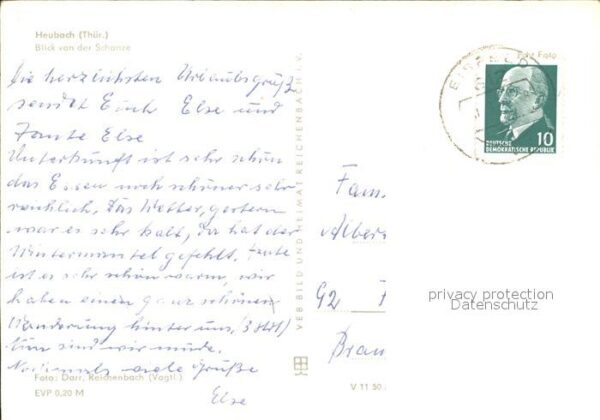 Heubach (Thür.)
Blick von der Schanze
Die herzlichsten Urlaubsgrüße
sendet Euch Else und
Tante Else
Unterkunft ist sehr schön
das Essen noch schöner sehr
reichlich. Das Wetter, gestern
war es sehr kalt, da hat der
Wintermantel gefehlt. Heute
ist es sehr schön warm, wir
haben einen ganz schönen
Wanderung hinter uns,
Nun sind wir müde.
Nochmals viele Grüße
Else
Foto: Darr, Reichenbach (Vogtl.)
EVP 0,20 M
VEB BILD UND HEIMAT REICHENBACH i. V.
V 11 50
Echt Foto
10
DEUTSCHE
DEMOKRATISCHE REPUBLIK
Fam.
Alber
92
Brau
privacy protection
Datenschutz